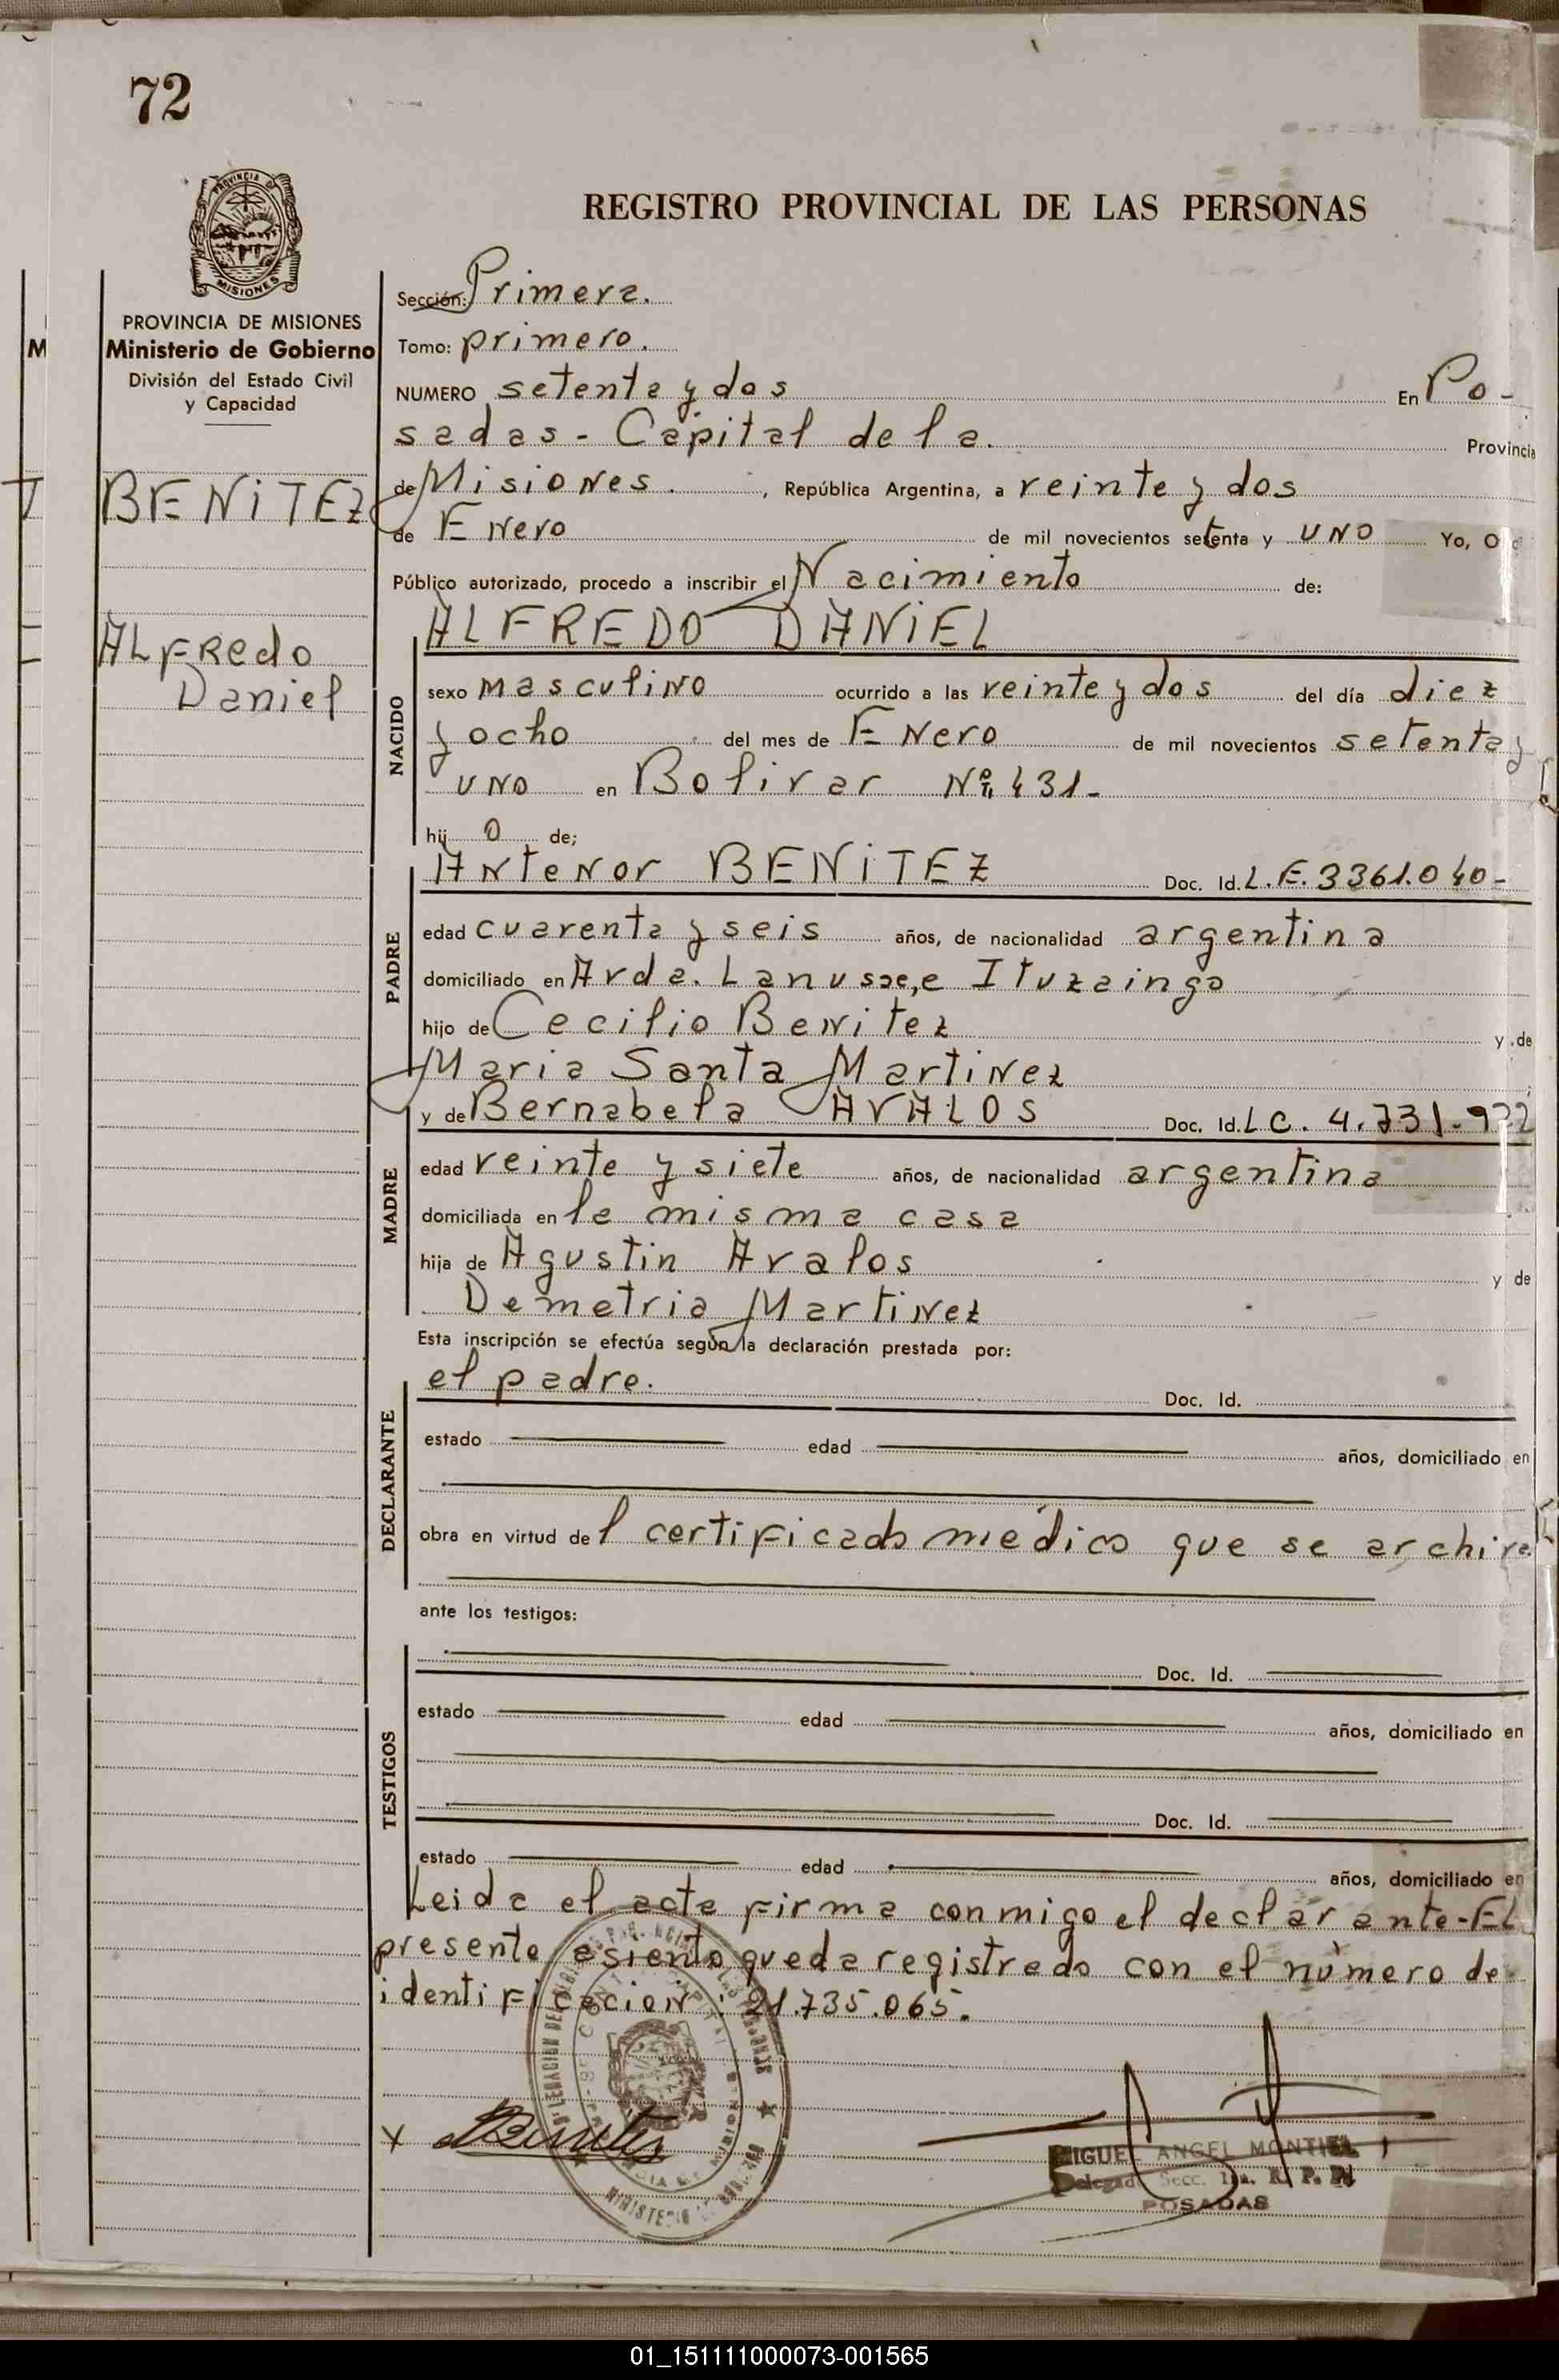 72
PROVINCIA DE
MISIONES
REGISTRO PROVINCIAL DE LAS PERSONAS
PROVINCIA DE MISIONES
Ministerio de Gobierno
División del Estado Civil
y Capacidad
BENITEZ
ALFRedo
Daniel
Sección: Primera.
Tomo: primero.
NUMERO setenta y dos En Po-
sadas - Capital de la. Provincia
de Misiones. , República Argentina, a veinte y dos
de Enero de mil novecientos setenta y uno Yo, O
Público autorizado, procedo a inscribir el Nacimiento de:
NACIDO
ALFREDO DANIEL
sexo masculino ocurrido a las veinte y dos del día diez
y ocho del mes de Enero de mil novecientos setenta y
uno en Bolivar Nº 431-
hij o de;
PADRE
Antenor BENITEZ Doc. Id. L.E. 3361.040-
edad cuarenta y seis años, de nacionalidad argentina
domiciliado en Avda. Lanusse, e Ituzaingo
hijo de Cecilio Benitez y de
Maria Santa Martinez
MADRE
y de Bernabela AVALOS Doc. Id. LC. 4.731.922
edad veinte y siete años, de nacionalidad argentina
domiciliada en la misma casa
hija de Agustin Avalos y de
Demetria Martinez
Esta inscripción se efectúa según la declaración prestada por:
DECLARANTE
el padre. Doc. Id.
estado edad años, domiciliado en
obra en virtud del certificado médico que se archiva
ante los testigos:
TESTIGOS
Doc. Id.
estado edad años, domiciliado en
Doc. Id.
estado edad años, domiciliado en
Leida el acta firma conmigo el declarante-EL
presente asiento queda registrado con el número de
identificacion: 21.735.065.
x Benitez
MIGUEL ANGEL MONTIEL
Delegado Secc. 1ra. R. P. P.
POSADAS
01_151111000073-001565